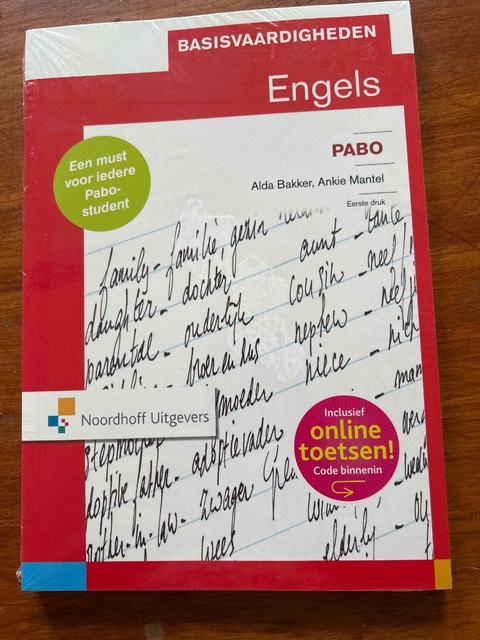 BASISVAARDIGHEDEN
Engels
PABO
Alda Bakker, Ankie Mantel
Eerste druk
Een must
voor iedere
Pabo-
student
family - familie, gezin
aunt - tante
daughter - dochter
cousin - neef/
parental - ouderlijk
nephew - neef
broer en zus
niece - nich
moeder
man
adoptievader
father-in-law - zwager
wees
elderly - 
Noordhoff Uitgevers
Inclusief
online
toetsen!
Code binnenin